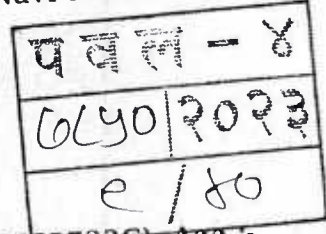 पवल - ४
७८५० | २०२३
९ / ४०